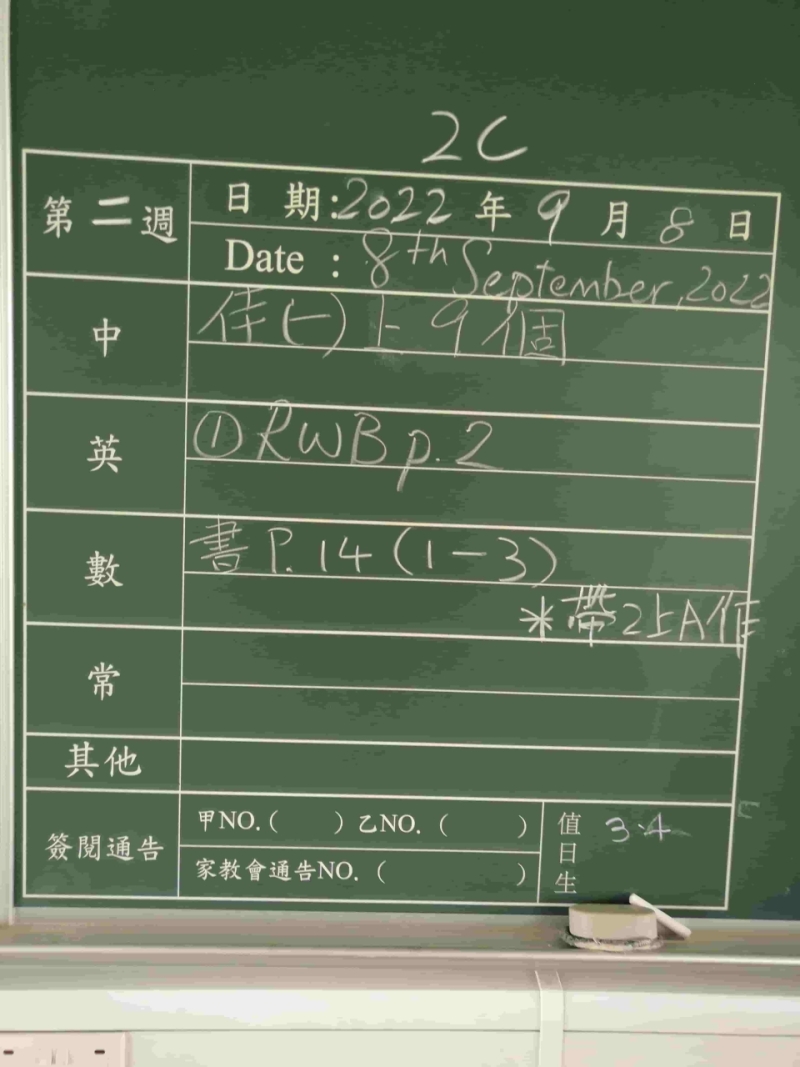 2C
第二週
日 期:2022年9月8日
Date : 8th September, 2022
中
佳(一) 1-9個
英
①RWB p.2
數
書 P.14 (1-3)
*帶2上A作
常
其他
簽閱通告
甲NO.( ) 乙NO. ( )
家教會通告NO. ( )
值日生
3、4